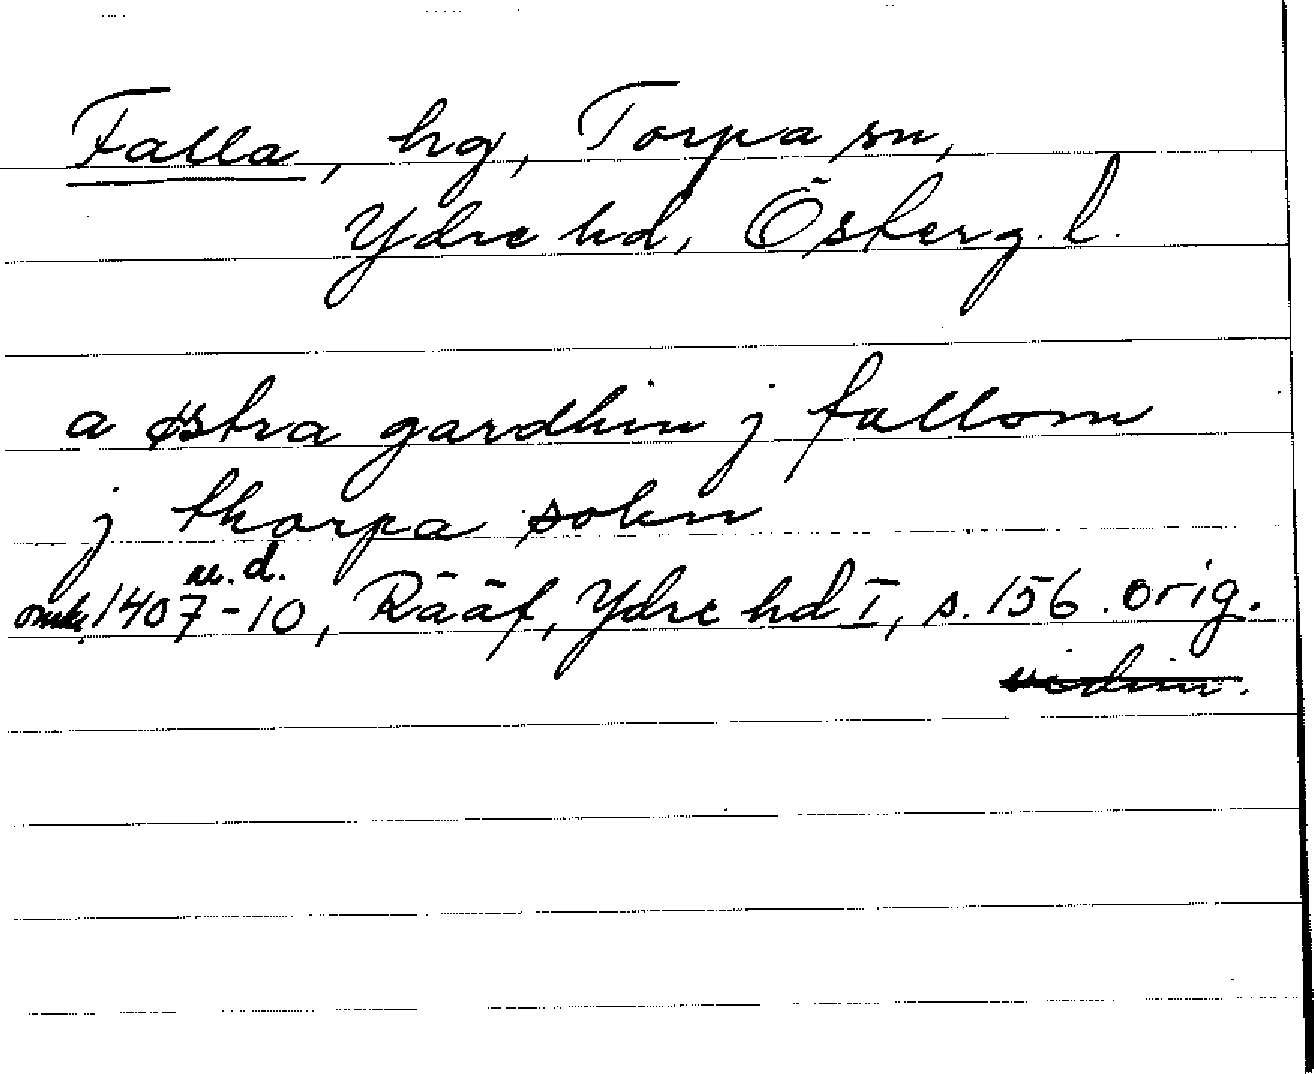 Falla, hg, Torpa sn,
Ydre hd, Österg. l.
a østra gardhin j fallom
j thorpa sokn
u.d.
omkr. 1407-10, Rääf, Ydre hd I, s. 156. orig.
vidim.